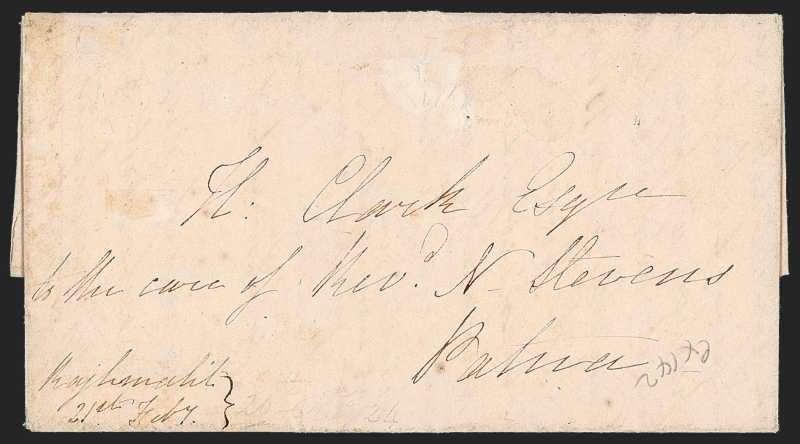 Th: Clark Esqre
to the care of Revd. N. Stevens
Patna
21st Feby.